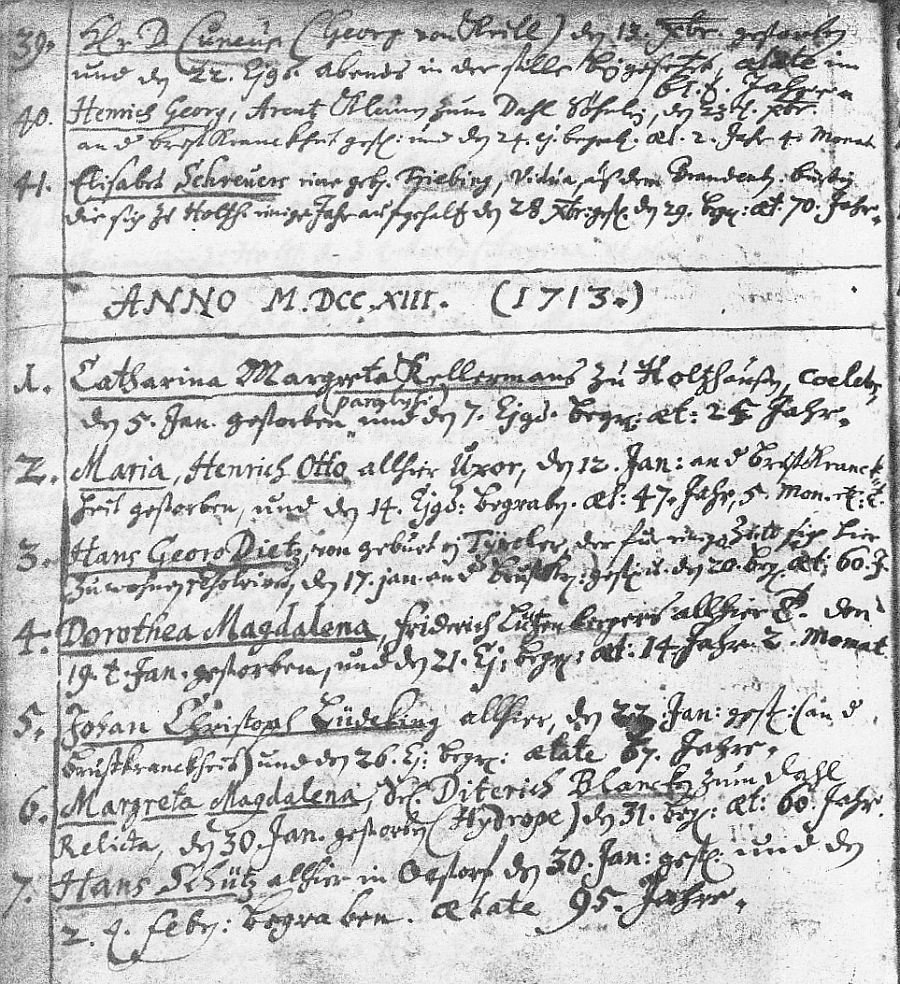 39. Hr. D. Cuneus (Georg von Kroll) den 18. Xbr. gestorben
und den 22. Ejgd. abends in der stille beygesetzt, ætate im
61.t. Jahre.
40. Henrich Georg, Arent zum Dahl Söhnlein, den 23.t. Xbr.
an d Brustkranckheit gest: und den 24. ej. begrab. æt. 2. Jahr 4. Monat
41. Elisabet Schreuers eine geb. Vidua, aus dem Brandenb. bürtig
die sich zu Holzh. einige Jahr aufgehalten den 28 Xbr. gest. den 29. begr: æt: 70. Jahr.
ANNO M.DCC.XIII. (1713.)
1. Catharina Margreta Kellermans zu Holzhausen, coelebs,
den 5. Jan. gestorben (paralysi) und den 7. Ejgd. begr: æt: 25 Jahr.
2. Maria, Henrich Otto allhier Uxor, den 12. Jan: an d Brustkranck-
heit gestorben, und den 14. Ejgd: begraben. æt: 47. Jahr, 5. Mon.
3. Hans Georg Dietz, von geburt ein Tyroler, der für einiger Zeit sich hier
zu wohnen, den 17. jan. an d gest. u. den 20. begr. æt: 60. J.
4. Dorothea Magdalena, Friderich Lützenbergers allhier T. den
19.t. Jan. gestorben, und den 21. Ej: begr: æt: 14 Jahr. 2. Monat.
5. Johan Christoph Lüdeking allhier, den 22. Jan: gest: (an d.
Brustkranckheit) und den 26. Ej: begr: ætate 67. Jahre.
6. Margreta Magdalena, Sel. Diterich Blancken zum Dahl
Relicta, den 30. Jan. gestorben (Hydrope) den 31. begr: æt: 60. Jahr.
7. Hans Schütz allhier in Oestorf den 30. Jan: gest. und den
2. t. Feb: begraben. ætate 95. Jahre.